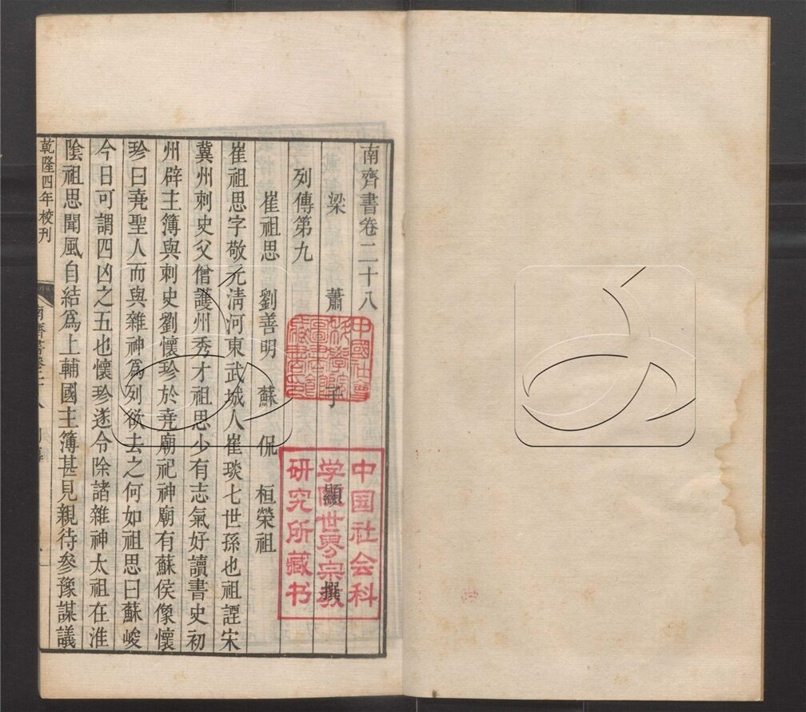 南齊書卷二十八
梁 蕭 子 顯 撰
列傳第九
崔祖思 劉善明 蘇侃 桓榮祖
崔祖思字敬元淸河東武城人崔琰七世孫也祖諲宋
冀州刺史父僧護州秀才祖思少有志氣好讀書史初
州辟主簿與刺史劉懷珍於堯廟祀神廟有蘇侯像懷
珍曰堯聖人而與雜神爲列欲去之何如祖思曰蘇峻
今日可謂四凶之五也懷珍遂令除諸雜神太祖在淮
陰祖思聞風自結爲上輔國主簿甚見親待參豫謀議
乾隆四年校刊
中國社會
科學院
圖書館
藏書印
中国社会科
学院世界宗教
研究所藏书